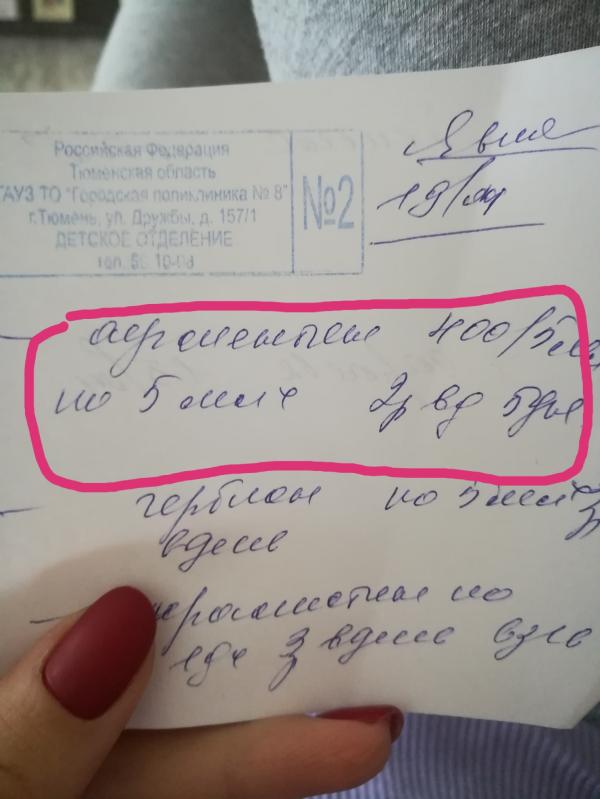 Российская Федерация
Тюменская область
ГАУЗ ТО "Городская поликлиника № 8"
г.Тюмень, ул. Дружбы, д. 157/1
ДЕТСКОЕ ОТДЕЛЕНИЕ
тел.
№2
аугментин 400/5мл
по 5 мл 2р вд 5дн
гербион по 5 мл 3р
в день
мирамистин по
3 в день